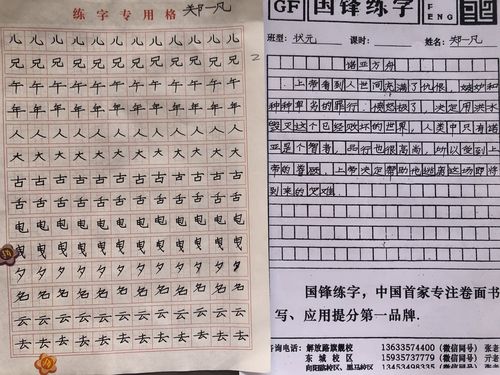 练字专用格 郑一凡
儿儿儿儿儿儿儿儿儿儿
兄兄兄兄兄兄兄兄兄兄
午午午午午午午午午午
年年年年年年年年年年
人人人人人人人人人人
大大大大大大大大大大
古古古古古古古古古古
舌舌舌舌舌舌舌舌舌舌
电电电电电电电电电电
曳曳曳曳曳曳曳曳曳曳
夕夕夕夕夕夕夕夕夕夕
名名名名名名名名名名
云云云云云云云云云云
去去去去去去去去去去
2
GF 国锋练字 F
ENG
班型：状元 课时： 姓名：郑一凡
诺亚方舟
上帝看到人世间充满了仇恨，嫉妒和
种种罪名的罪行，愤怒极了，决定用洪水
毁灭这个已经败坏的世界，人类中只有诺
亚是个智者，品行也很高尚，所以受到上
帝的眷顾，上帝决定帮助他逃离这场即将
到来的灾难
国锋练字，中国首家专注卷面书
写、应用提分第一品牌.
咨询电话：解放路旗舰校 13633574400（微信同号）张老
东城校区 15935737779（微信同号）亓老
向阳路校区、黑马校区 13453498335（微信同号）张老